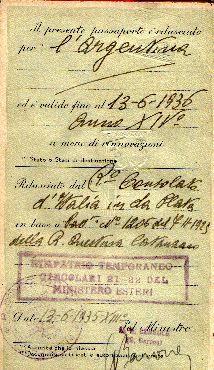 Il presente passaporto è rilasciato
per l'Argentina
ed è valido fino al 13-6-1936
Anno XIV°
a meno di rinnovazioni
Stato o Stati di destinazione
Rilasciato dal R° Consolato
d'Italia in La Plata
in base a N° 1206 del
della R. Questura Catanzaro
RIMPATRIO TEMPORANEO
CIRCOLARI 21-22 DEL
MINISTERO ESTERI
Dat 13-6-1935 XIII°
Pel Ministro